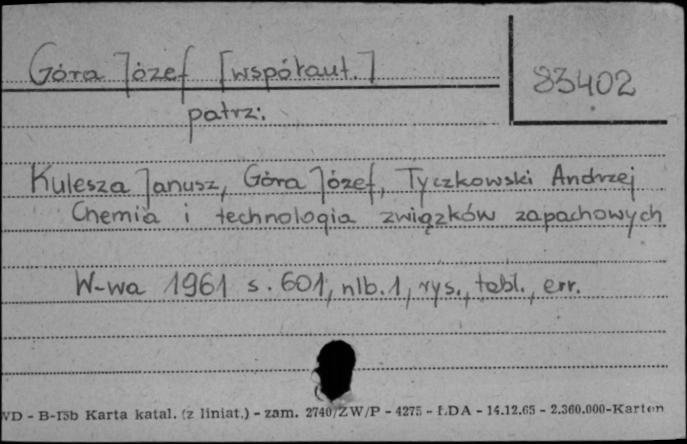 Góra Józef [współaut.]
83402
patrz:
Kulesza Janusz, Góra Józef, Tyczkowski Andrzej
Chemia i technologia związków zapachowych
W-wa 1961 s. 601, nlb. 1, rys., tabl., err.
VD - B-15b Karta katal. (z liniat.) - zam. 2740/ZW/P - 4275 - ŁDA - 14.12.65 - 2.360.000-Karton